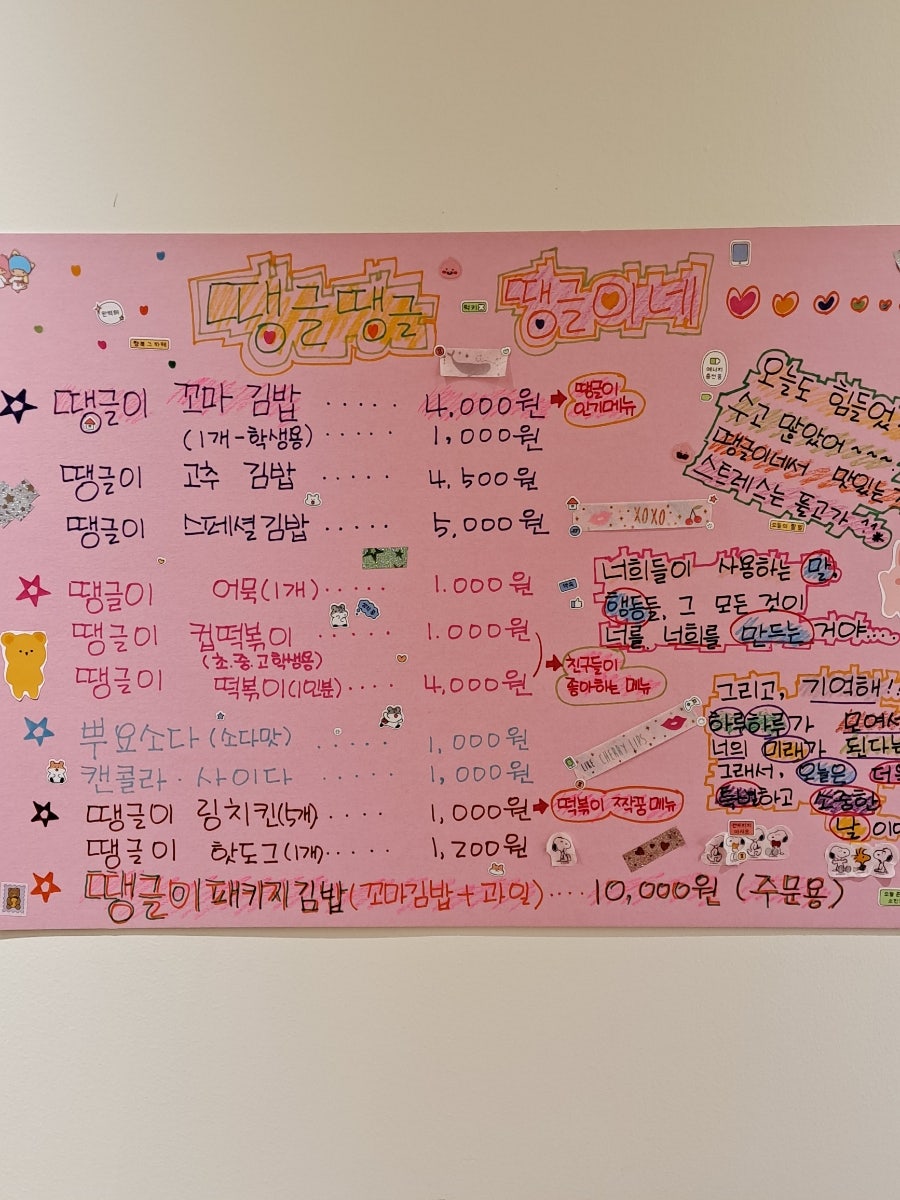 땡글땡글 땡글이네
땡글이 꼬마 김밥 ····· 4,000원 → 땡글이 인기메뉴
(1개-학생용) ····· 1,000원
땡글이 고추 김밥 ····· 4,500원
땡글이 스페셜김밥 ···· 5,000원
땡글이 어묵(1개) ···· 1.000원
땡글이 컵떡볶이 ····· 1.000원
(초.중.고학생용)
땡글이 떡볶이(1인분) ···· 4,000원 → 친구들이 좋아하는 메뉴
뿌요소다 (소다맛) 1,000원
캔콜라 · 사이다 1,000원
땡글이 링치킨(5개) ···· 1,000원 → 떡볶이 짝꿍메뉴
땡글이 핫도그(1개) ···· 1,200원
땡글이패키지김밥(꼬마김밥+과일) ···· 10,000원 (주문용)
오늘도 힘들었
수고 많았어~~~
땡글이네서 맛있는
스트레스는 풀고가
너희들이 사용하는 말,
행동들, 그 모든 것이
너를, 너희를 만드는 거야...
그리고, 기억해!!
하루하루가 모여서
너의 미래가 된다는
그래서, 오늘은 더욱
특별하고 소중한
날 이
XOXO
LIKE CHERRY LIPS